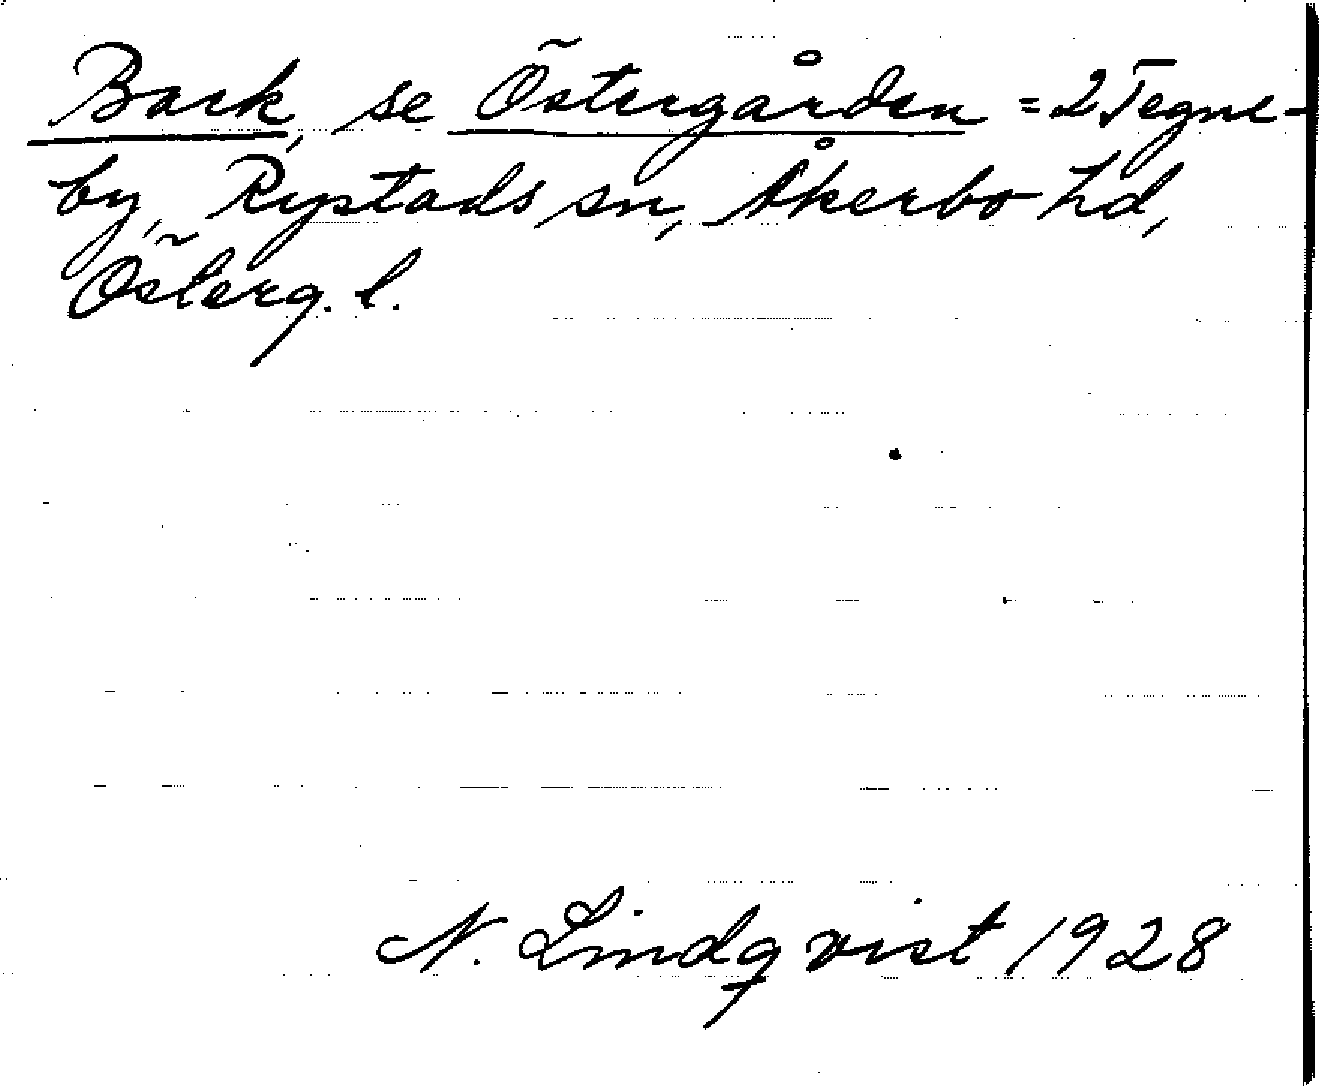 Back, se Östergården = 2 Tegne-
by, Rystads sn, Åkerbo hd,
Österg. l.
N. Lindqvist 1928